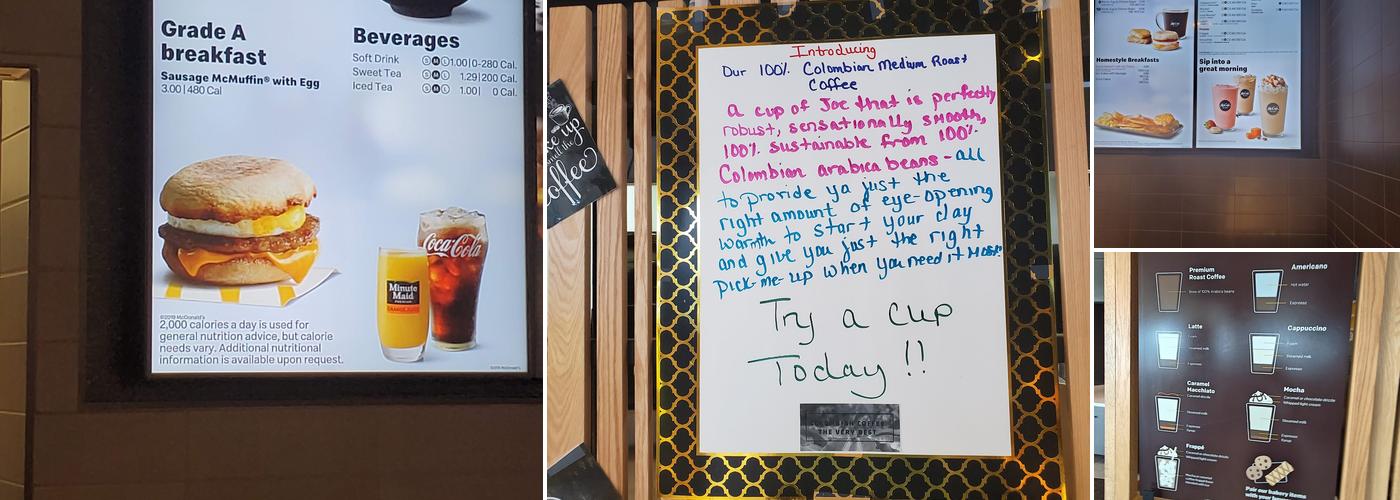 Grade A
breakfast
Sausage McMuffin® with Egg
3.00|480 Cal
Beverages
Soft Drink S M L 1.00|0-280 Cal.
Sweet Tea S M L 1.29|200 Cal.
Iced Tea S M L 1.00| 0 Cal.
Coca-Cola
Minute
Maid
©2019 McDonald's
2,000 calories a day is used for
general nutrition advice, but calorie
needs vary. Additional nutritional
information is available upon request.
up
the
coffee
Introducing
Our 100% Colombian Medium Roast
Coffee
A cup of Joe that is perfectly
robust, sensationally smooth,
100% sustainable from 100%
Colombian arabica beans - all
to provide ya just the
right amount of eye-opening
warmth to start your day
and give you just the right
pick-me-up when you need it most!
Try a cup
Today !!
COLOMBIAN COFFEE
THE VERY BEST
Homestyle Breakfasts
Sip into a
great morning
Premium
Roast Coffee
Americano
Hot water
Espresso
Latte
Foam
Steamed milk
Espresso
Cappuccino
Foam
Steamed milk
Espresso
Caramel
Macchiato
Caramel drizzle
Steamed milk
Espresso
Syrup
Mocha
Caramel or chocolate drizzle
Whipped light cream
Steamed milk
Espresso
Syrup
Frappé
Caramel or chocolate drizzle
Whipped light cream
Pair our bakery items
with your